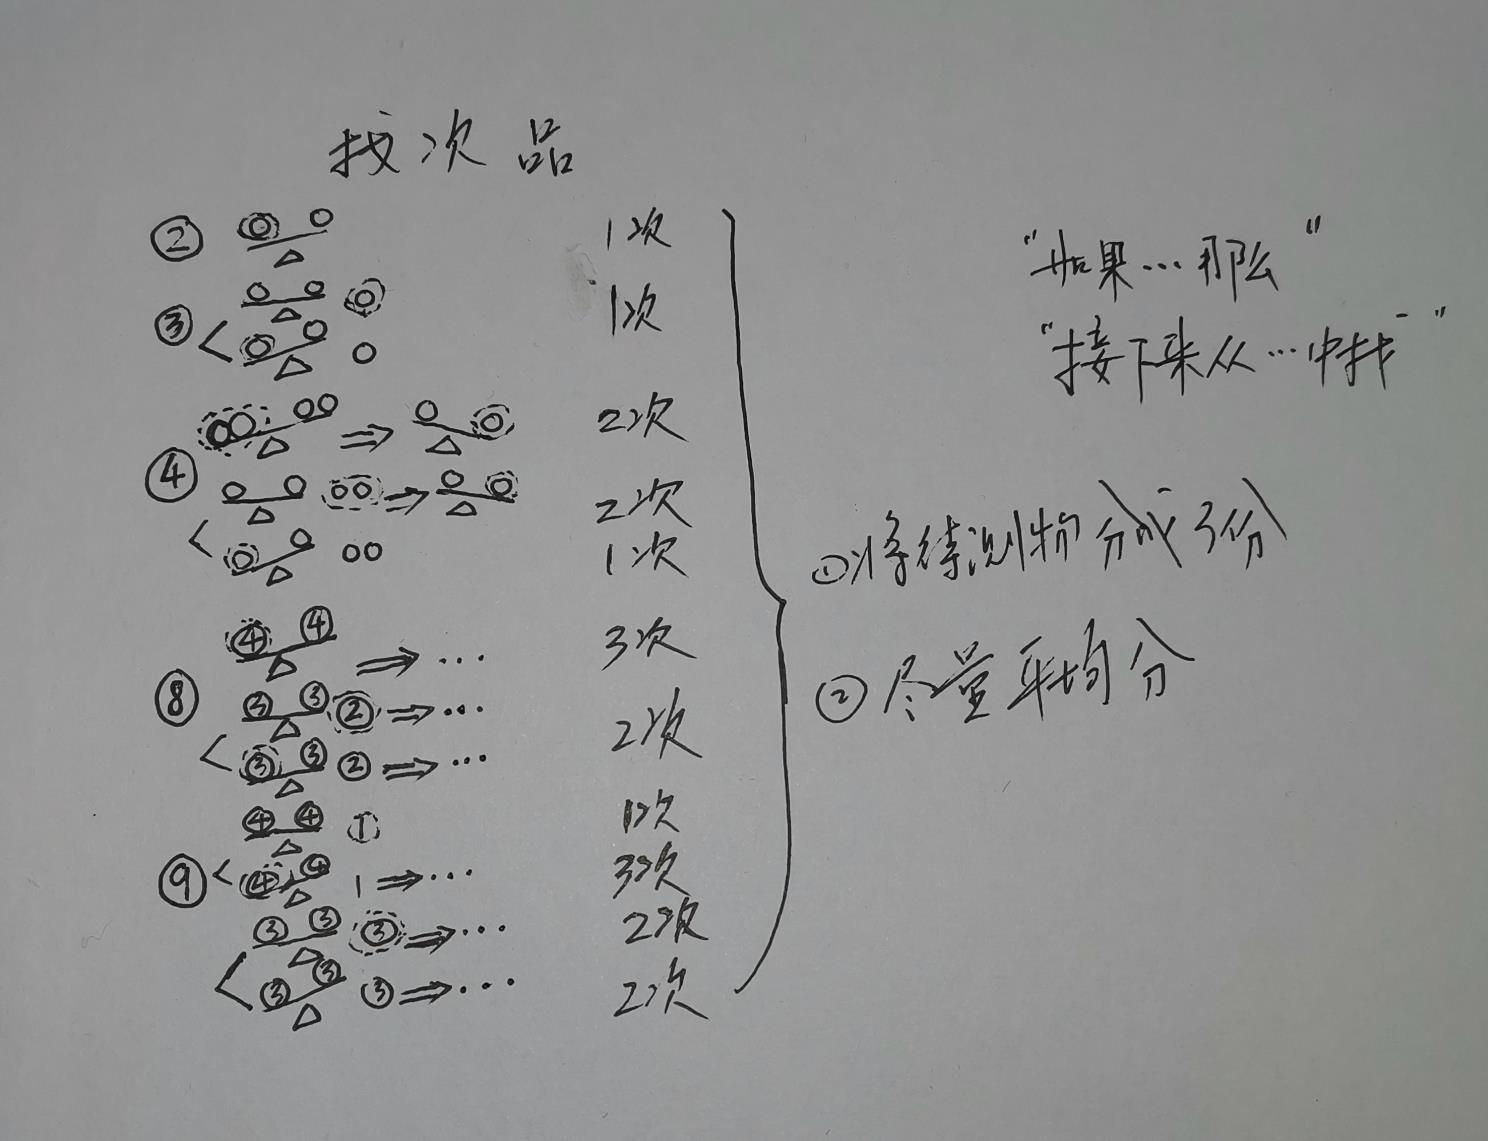 找次品
② 1次
③ 1次
④ 2次
2次
1次
④ ④ ... 3次
⑧ ③ ③ ② ... 2次
③ ③ ② ...
④ ④ 1 1次
⑨ ④ ④ 1 ... 3次
③ ③ ③ ... 2次
③ ③ ③ ... 2次
"如果...那么"
"接下来从...中找"
①将待测物分成3份
②尽量平均分